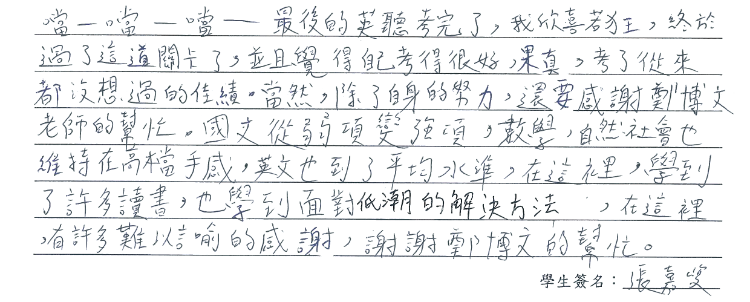 噹—噹—噹—最後的英聽考完了,我欣喜若狂,終於
過了這道關卡了,並且覺得自己考得很好,果真,考了從來
都沒想過的佳績。當然,除了自身的努力,還要感謝鄭博文
老師的幫忙。國文從弱項變強項,數學,自然社會也
維持在高檔手感,英文也到了平均水準,在這裡,學到
了許多讀書,也學到面對低潮的解決方法,在這裡
,有許多難以言喻的感謝,謝謝鄭博文的幫忙。
學生簽名:張嘉